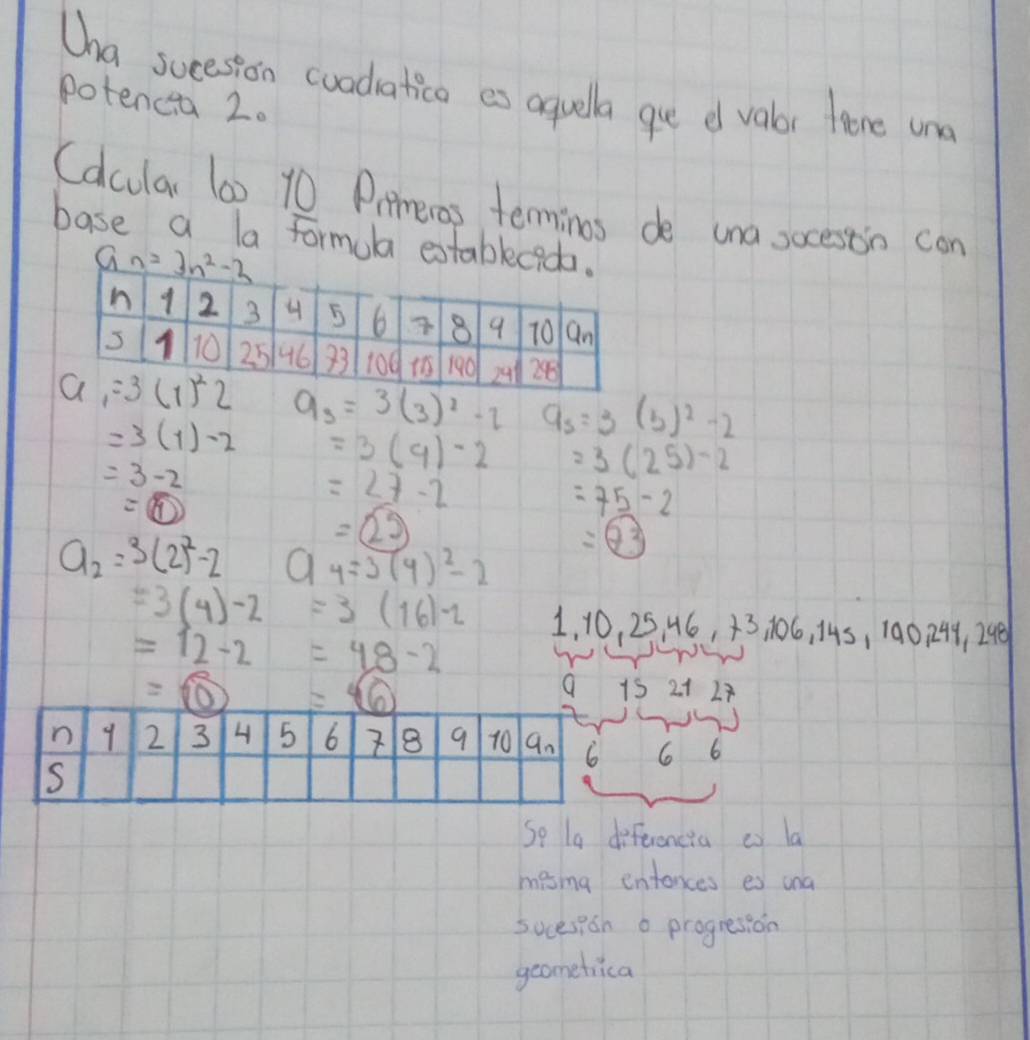 Una sucesión cuadratica es aquella que el valor tiene una
potencia 2.
Calcular los 10 Primeros terminos de una socesión con
base a la formula establecida.
an = 3n²-2
n 1 2 3 4 5 6 7 8 9 10 an
S 1 10 25 46 73 106 190 241 298
a₁ = 3(1)² 2
= 3(1)-2
= 3-2
= 1
a₂ = 3(2)²-2
= 3(4)-2
= 12-2
= 10
a₃ = 3(3)² -2
= 3(9)-2
= 27-2
= 25
a₄ = 3(4)²-2
= 3(16)-2
= 48-2
= 46
a₅ = 3(5)²-2
= 3(25)-2
= 75-2
= 73
1,10,25,46,73,106,145,190,241,298
9 15 21 27
6 6 6
n 1 2 3 4 5 6 7 8 9 10 an
S
Si la diferencia es la
misma entonces es una
sucesión o progresión
geometrica